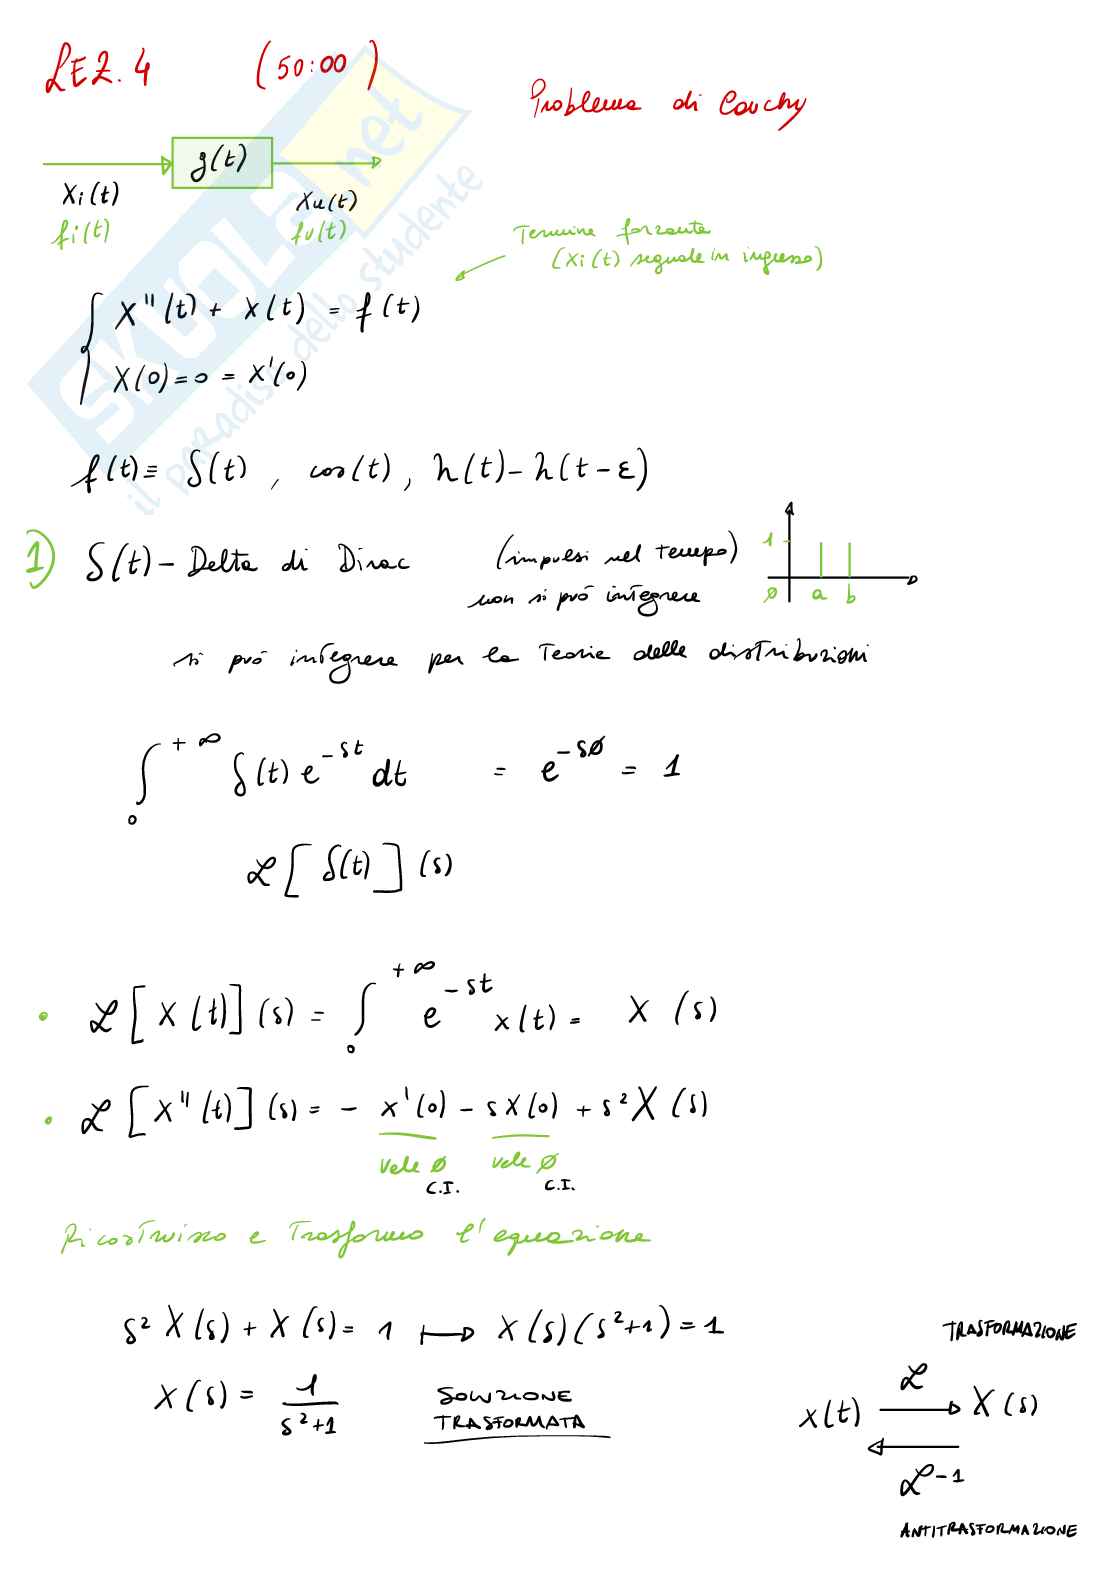 LEZ. 4 (50:00)
Problema di Cauchy
g(t)
Xi(t) Xu(t)
fi(t) fu(t)
Termine forzante
(Xi(t) segnale in ingresso)
X''(t) + X(t) = f(t)
X(0)=0=X'(0)
f(t)= δ(t), cos(t), h(t)-h(t-ε)
1) δ(t) - Delta di Dirac (impulsi nel tempo)
non si può integrare
1
ø a b
si può integrare per la Teoria delle distribuzioni
∫₀^{+∞} δ(t) e^{-st} dt = e^{-sø} = 1
ℒ[δ(t)](s)
• ℒ[X(t)](s) = ∫₀^{+∞} e^{-st} x(t) = X(s)
• ℒ[X''(t)](s) = - x'(0) - sX(0) + s²X(s)
vale ø vale ø
C.I. C.I.
Ricostruisco e Trasformo l'equazione
s² X(s) + X(s) = 1 ↦ X(s)(s²+1) = 1
X(s) = 1/(s²+1) SOLUZIONE
TRASFORMATA
TRASFORMAZIONE
ℒ
x(t) → X(s)
ℒ⁻¹
ANTITRASFORMAZIONE
SKUOLA.net
il paradiso dello studente